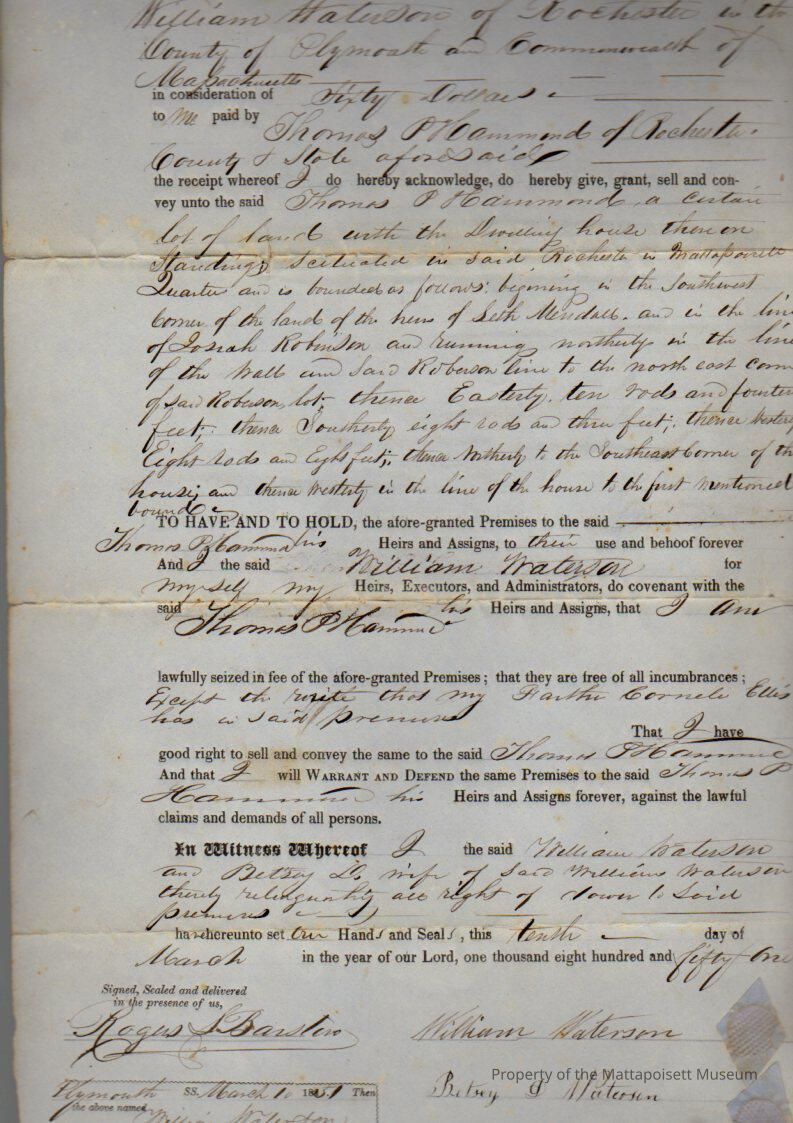 William Waterson of Rochester in the
County of Plymoath and Commonwealth of
Massachusetts
in consideration of Dollars
to me paid by
Thomas P Hammond of Rochester
County & State aforesaid
the receipt whereof I do hereby acknowledge, do hereby give, grant, sell and con-
vey unto the said Thomas P Hammond, a certain
lot of land with the Dwelling house thereon
Standing scituated in said Rochester in Mattapoisett
Quarter and is bounded as follows: begining in the Southwest
Corner of the land of the heirs of Seth Mendall. and in the line
of Josiah Robinson and running northerly in the line
of the Wall and said Roberson line to the north east corn
of said Roberson lot; thence Easterly. ten rods and fourteen
feet; thence Southerly eight rods and three feet; thence Westerly
Eight rods and Eight feet; thence Northerly to the Southeast Corner of the
house; and thence Westerly in the line of the house to the first mentioned
bound
TO HAVE AND TO HOLD, the afore-granted Premises to the said
Thomas P Hammond his Heirs and Assigns, to their use and behoof forever
And I the said William Waterson for
my self my Heirs, Executors, and Administrators, do covenant with the
said his Heirs and Assigns, that I am
Thomas P Hammond
lawfully seized in fee of the afore-granted Premises; that they are free of all incumbrances;
Except the that my Cornele Ellis
has in said premises
That I have
good right to sell and convey the same to the said Thomas P Hammond
And that I will WARRANT AND DEFEND the same Premises to the said Thomas P
Hammond his Heirs and Assigns forever, against the lawful
claims and demands of all persons.
In Witness Whereof I the said William Waterson
and Betsey D. wife of said William Waterson
all right of dower to said
premises
have hereunto set our Hands and Seals, this tenth day of
March in the year of our Lord, one thousand eight hundred and fifty one
Signed, Sealed and delivered
in the presence of us,
Rogers L Barstow William Waterson
Betsey D Waterson
Property of the Mattapoisett Museum
Plymouth SS. March 10 1851 Then
the above named
William Waterson